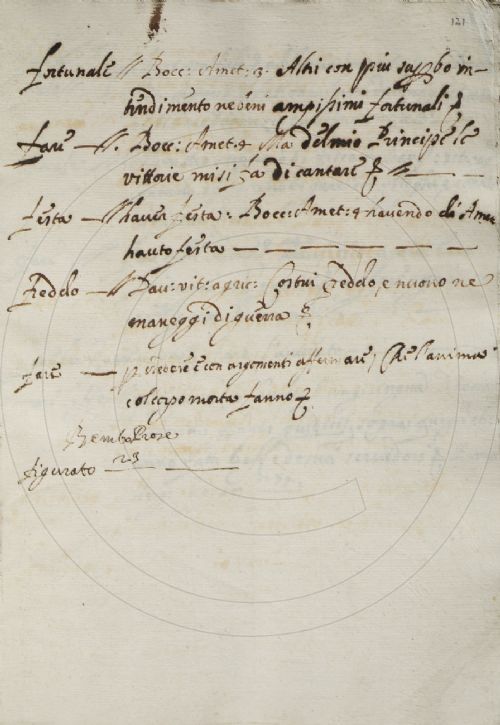 121
fortunale // Bocc: Amet: 3. Altri con piu superbo in-
tendimento ne beni ampissimi fortunali
fare — //. Bocc: Amet: 4 Ma del mio Principe le
vittorie mi si fa di cantare //
festa — // haver festa: Bocc: Amet: 4 havendo di Amet
hauto festa
freddo — // Dav: vit: agric: freddo, e nuovo ne
maneggi di guerra
fare — credere e con argomenti affermare, Che l'anima
col corpo morta fanno
Bembo Prose
figurato 23